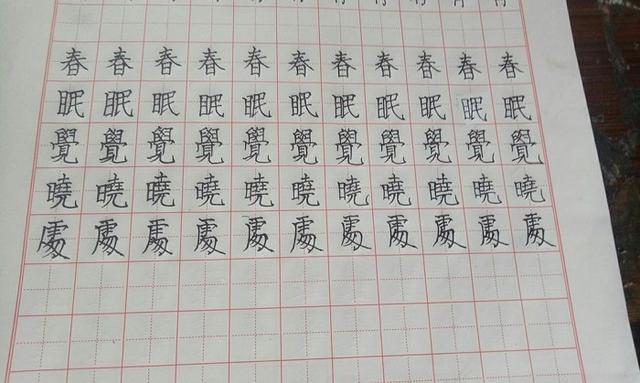 春春春春春春春春春春春
眠眠眠眠眠眠眠眠眠眠眠
覺覺覺覺覺覺覺覺覺覺覺
曉曉曉曉曉曉曉曉曉曉曉
處處處處處處處處處處處